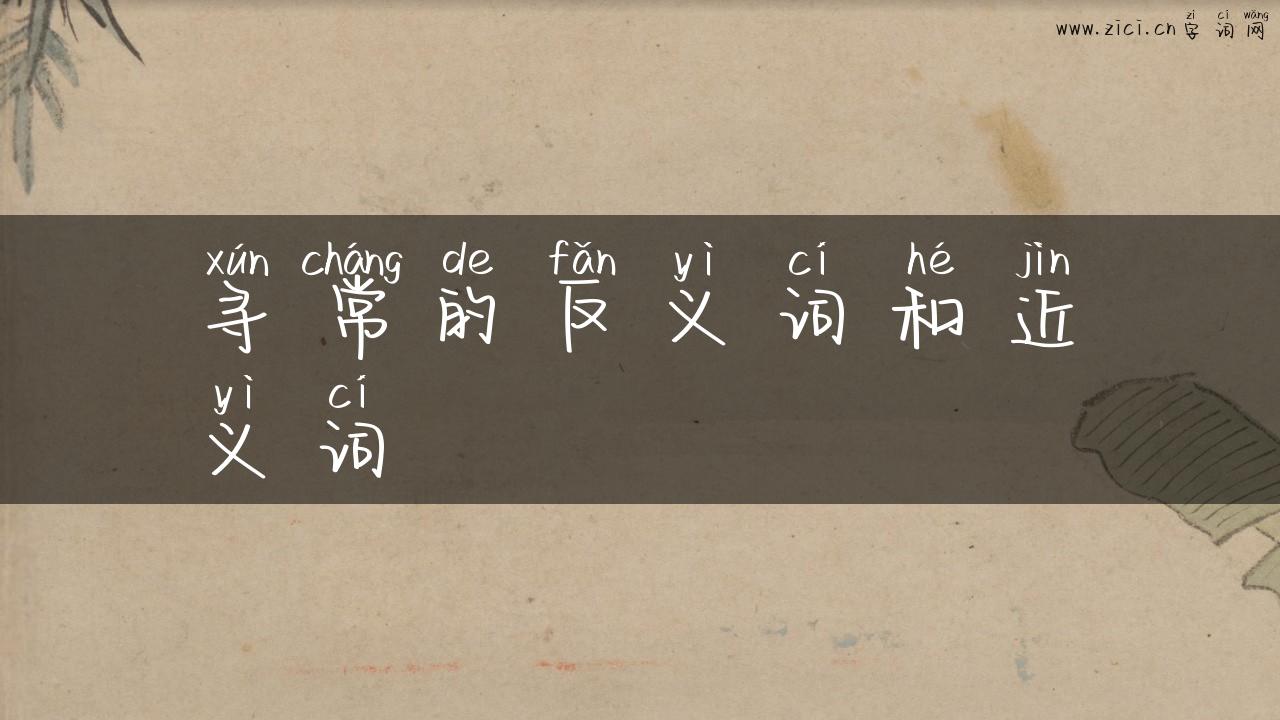 zì cí wǎng
www.zici.cn 字词网
xún cháng de fǎn yì cí hé jìn
寻常的反义词和近
yì cí
义词